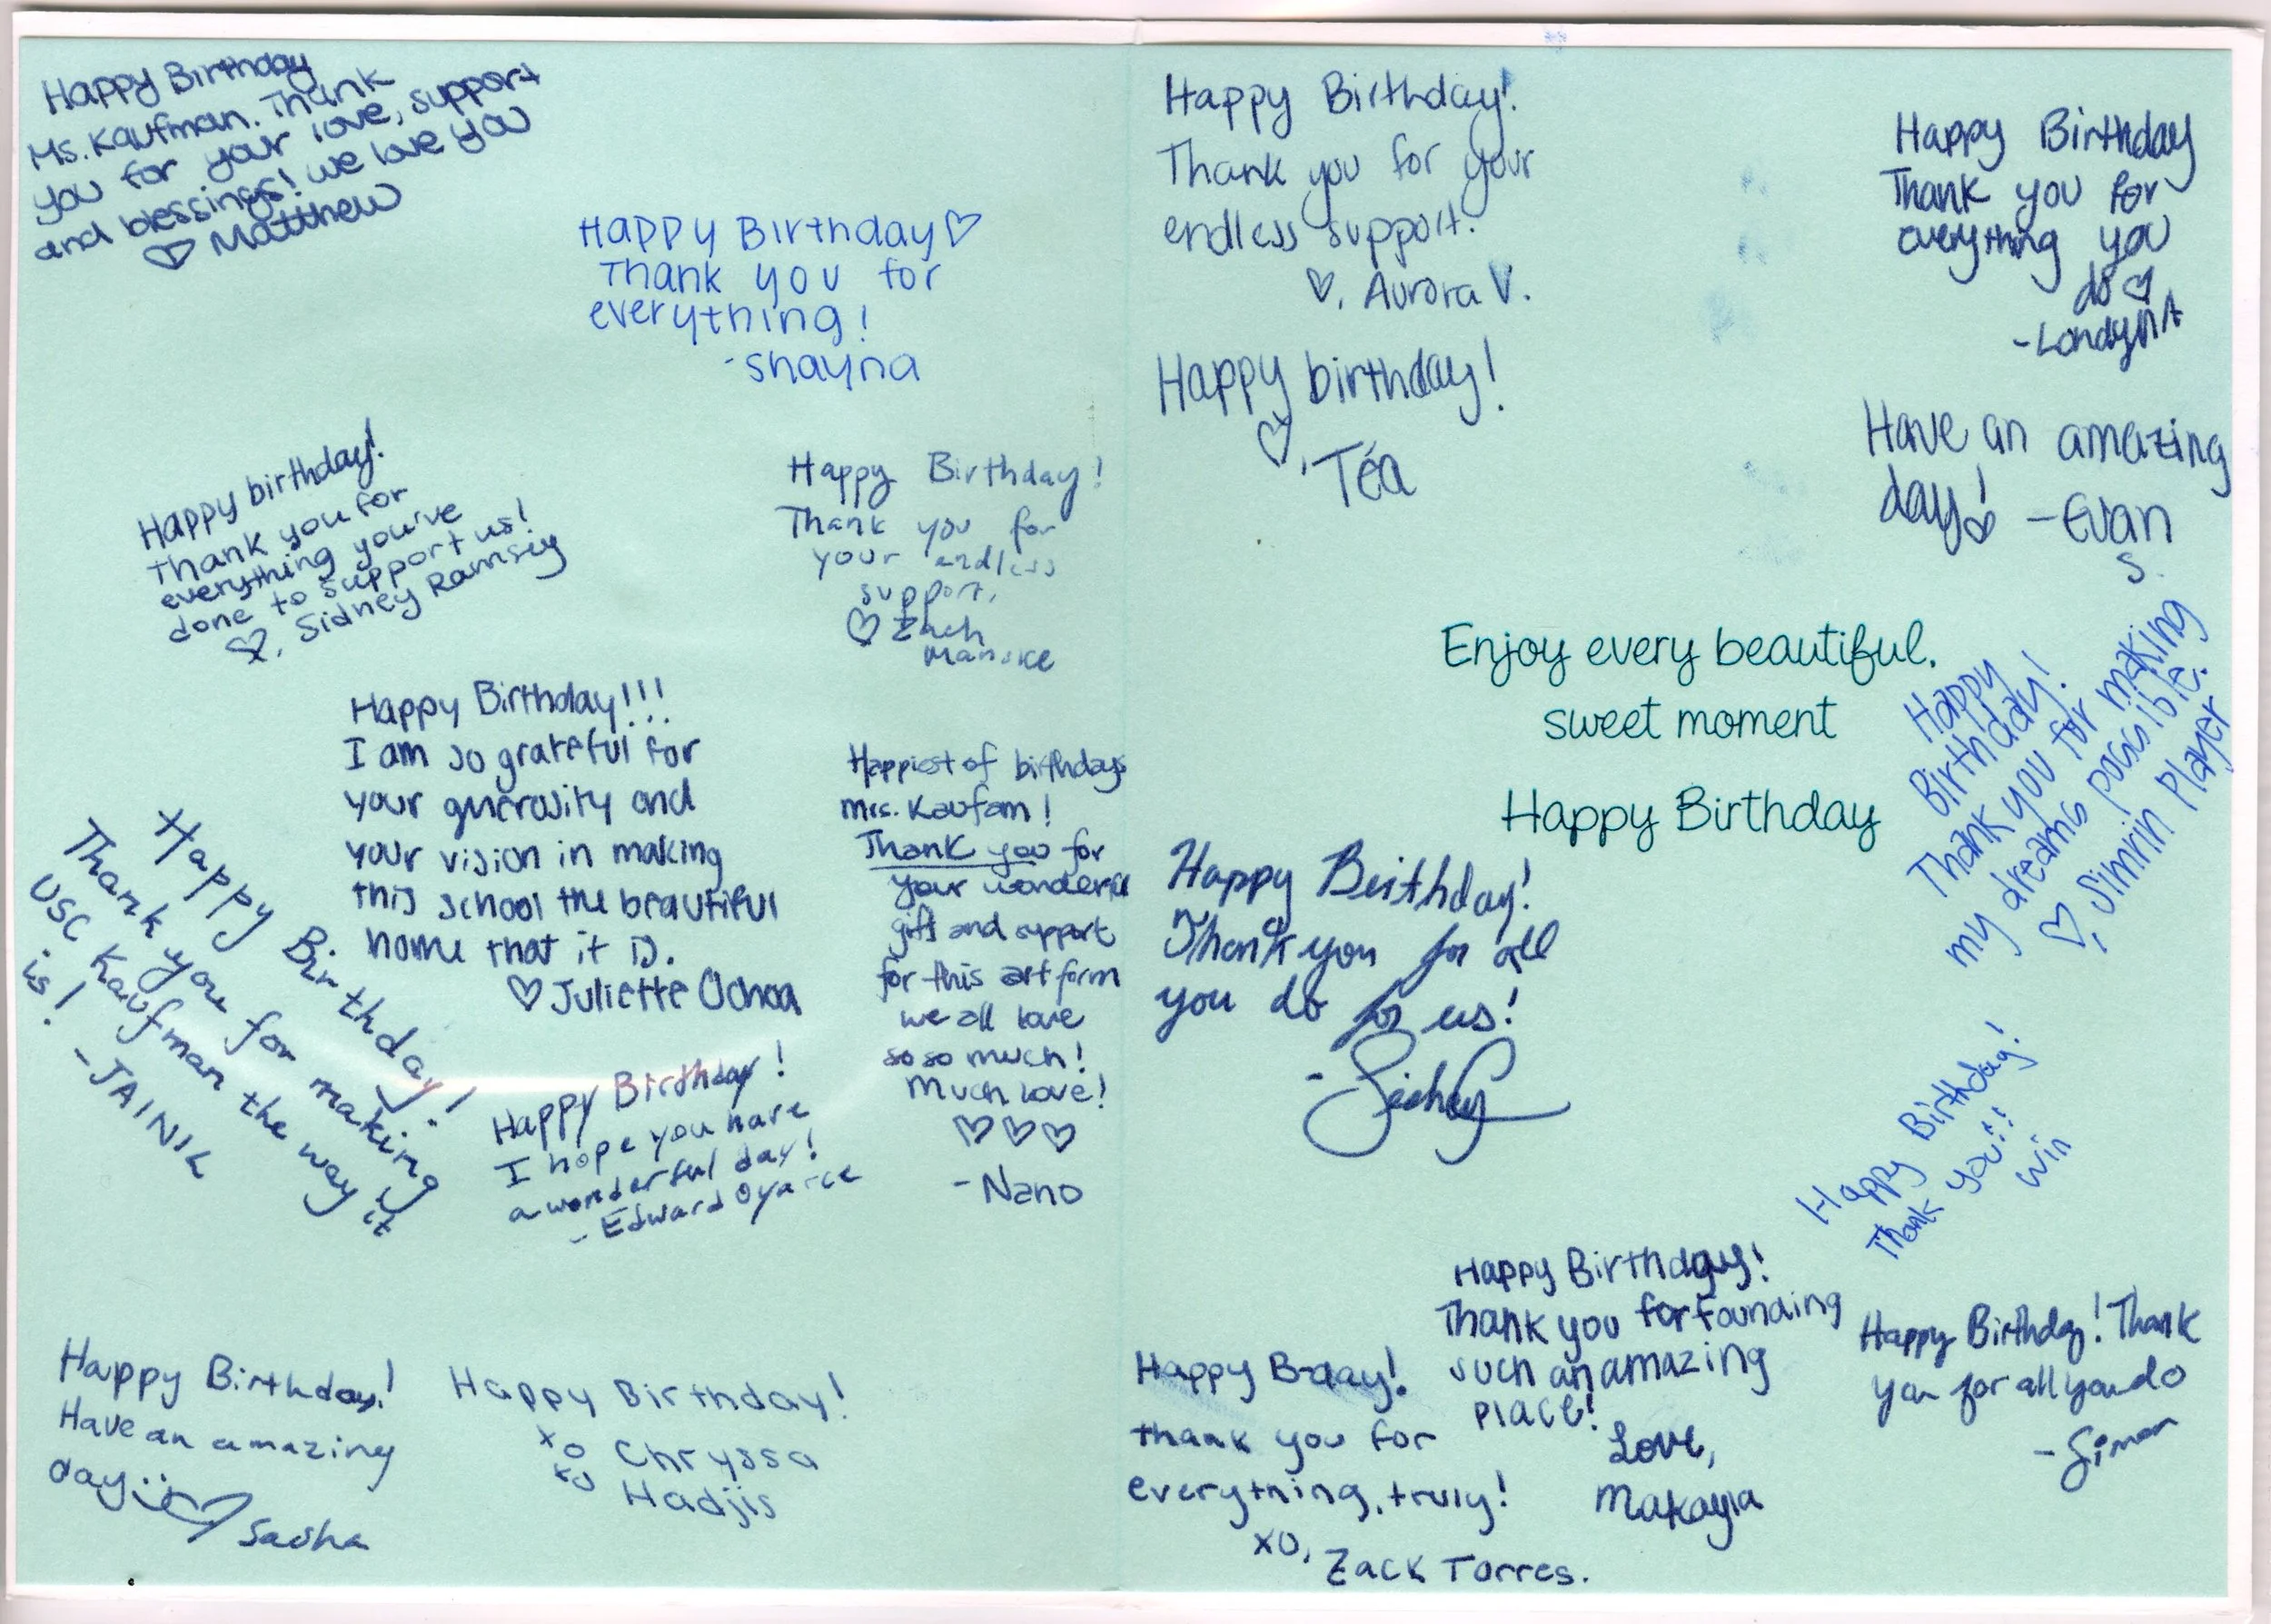 Happy Birthday
Ms. Kaufman. Thank
you for your love, support
and blessings! we love you
♡ Matthew
Happy Birthday♡
Thank you for
everything!
-Shayna
Happy birthday!
Thank you for
everything you've
done to support us!
♡, Sidney Ramsey
Happy Birthday!
Thank you for
your endless
support,
♡ Zach
Manske
Happy Birthday!!!
I am so grateful for
your generosity and
your vision in making
this school the beautiful
home that it is.
♡ Juliette Ochoa
Happiest of birthdays
Mrs. Kaufam!
Thank you for
your wonderful
gift and support
for this art form
we all love
so so much!
Much Love!
♡♡♡
-Nano
Happy Birthday!
Thank you for making
USC Kaufman the way it
is!
-JAINIL
Happy Birthday!
I hope you have
a wonderful day!
- Edward Oyarce
Happy Birthday!
Have an amazing
day :) ♡ Sasha
Happy Birthday!
xo Chryssa
xo Hadjis
Happy Birthday!
Thank you for your
endless support!
♡, Aurora V.
Happy birthday!
♡, Téa
Happy Birthday
Thank you for
everything you
do ♡
-Londyn A
Have an amazing
day! ♡ -Evan
S.
Enjoy every beautiful,
sweet moment
Happy Birthday
Happy
Birthday!
Thank you for making
my dreams possible.
♡, Simrin Player
Happy Birthday!
Thank you for all
you do for us!
-
Happy Birthday!
Thank you!!
Win
Happy Birthday!
Thank you for founding
such an amazing
place!
Love,
Makayla
Happy B-day!
thank you for
everything, truly!
xo,
Zack Torres.
Happy Birthday! Thank
you for all you do
-Simon